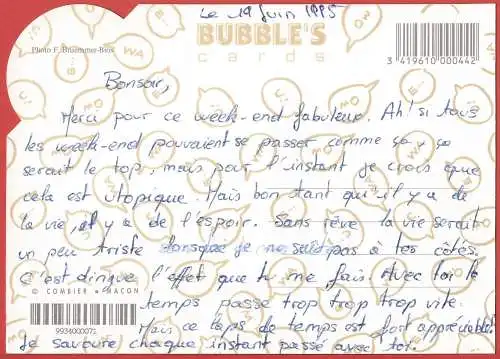 Le 19 Juin 1995
BUBBLE'S
cards
Photo F. Brisemmer-Bios
3 419610 000442
Bonsoir,
Merci pour ce week-end fabuleux. Ah! si tous
les week-end pouvaient se passer comme ça, ça
serait le top, mais pour l'instant je crois que
cela est utopique. Mais bon tant qu'il y a de
la vie, il y a de l'espoir. Sans rêve la vie serait
un peu triste lorsque je ne suis pas à tes côtés.
C'est dingue l'effet que tu me fais. Avec toi le
© COMBIER • MACON
temps passe trop trop trop vite.
9934000071
Mais ce laps de temps est fort appréciable!
Je savoure chaque instant passé avec toi.